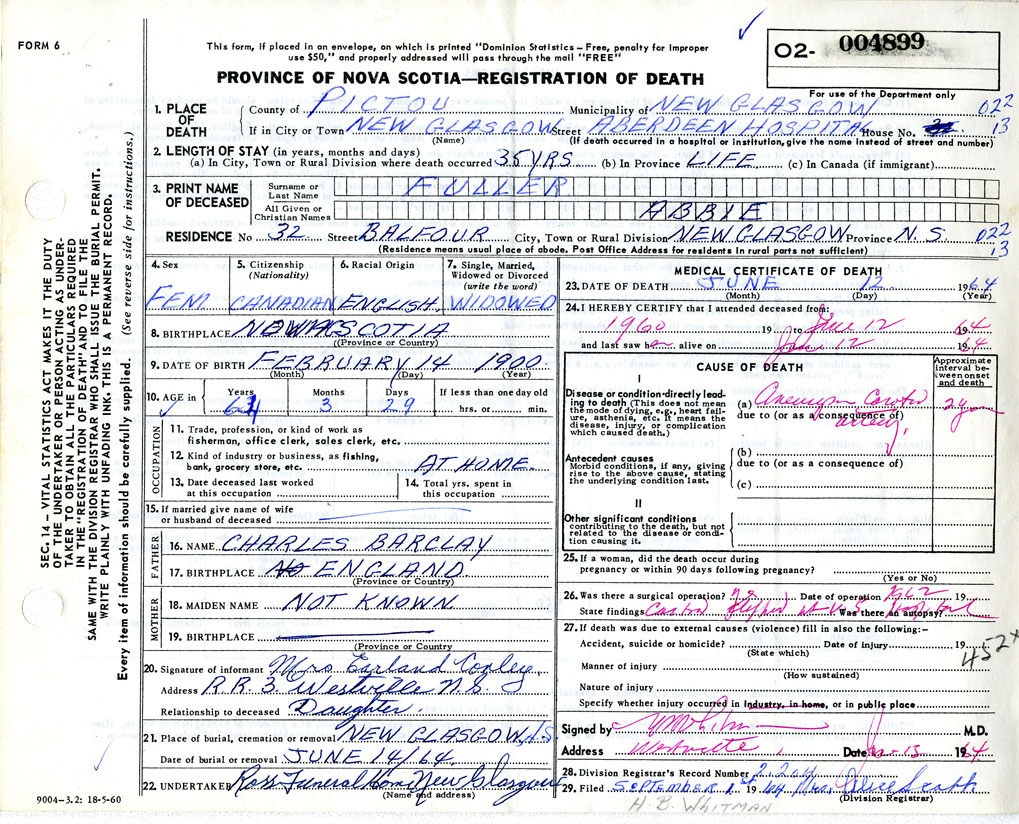 FORM 6
This form, if placed in an envelope, on which is printed "Dominion Statistics – Free, penalty for improper
use $50," and properly addressed will pass through the mail "FREE"
O2- 004899
For use of the Department only
PROVINCE OF NOVA SCOTIA—REGISTRATION OF DEATH
1. PLACE OF DEATH
County of PICTOU Municipality of NEW GLASGOW 022
If in City or Town NEW GLASGOW Street ABERDEEN HOSPITAL House No. 13
(Name) (If death occurred in a hospital or institution, give the name instead of street and number)
2. LENGTH OF STAY (in years, months and days)
(a) In City, Town or Rural Division where death occurred 35 YRS (b) In Province LIFE (c) In Canada (if immigrant)
3. PRINT NAME OF DECEASED
Surname or Last Name FULLER
All Given or Christian Names ABBIE
RESIDENCE No 32 Street BALFOUR City, Town or Rural Division NEW GLASGOW Province N.S. 022
13
(Residence means usual place of abode. Post Office Address for residents in rural parts not sufficient)
4. Sex FEM
5. Citizenship (Nationality) CANADIAN
6. Racial Origin ENGLISH
7. Single, Married, Widowed or Divorced (write the word) WIDOWED
8. BIRTHPLACE NOVA SCOTIA
(Province or Country)
9. DATE OF BIRTH FEBRUARY 14 1900
(Month) (Day) (Year)
10. AGE in Years 64 Months 3 Days 29 If less than one day old
hrs. or min.
OCCUPATION
11. Trade, profession, or kind of work as
fisherman, office clerk, sales clerk, etc.
12. Kind of industry or business, as fishing,
bank, grocery store, etc. AT HOME
13. Date deceased last worked
at this occupation
14. Total yrs. spent in
this occupation
15. If married give name of wife
or husband of deceased
FATHER
16. NAME CHARLES BARCLAY
17. BIRTHPLACE ENGLAND
(Province or Country)
MOTHER
18. MAIDEN NAME NOT KNOWN
19. BIRTHPLACE
(Province or Country)
20. Signature of informant Mrs. Earland Copley
Address R.R. 3. Westville N.S.
Relationship to deceased Daughter.
21. Place of burial, cremation or removal NEW GLASGOW N.S.
Date of burial or removal JUNE 14/64.
22. UNDERTAKER Ross Funeral Home New Glasgow
(Name and address)
MEDICAL CERTIFICATE OF DEATH
23. DATE OF DEATH JUNE 12 1964
(Month) (Day) (Year)
24. I HEREBY CERTIFY that I attended deceased from:
1960 19 to June 12 1964
and last saw her alive on June 12 1964
CAUSE OF DEATH
Approximate interval between onset and death
I
Disease or condition directly leading to death (This does not mean the mode of dying, e.g., heart failure, asthenia, etc. It means the disease, injury, or complication which caused death.)
(a) Aneurysm Carotid 2 y
due to (or as a consequence of) artery.
Antecedent causes
Morbid conditions, if any, giving rise to the above cause, stating the underlying condition last.
(b)
due to (or as a consequence of)
(c)
II
Other significant conditions
contributing to the death, but not related to the disease or condition causing it.
25. If a woman, did the death occur during
pregnancy or within 90 days following pregnancy?
(Yes or No)
26. Was there a surgical operation? Date of operation 1962
State findings Was there an autopsy?
27. If death was due to external causes (violence) fill in also the following:–
Accident, suicide or homicide? Date of injury 19
(State which)
452x
Manner of injury
(How sustained)
Nature of injury
Specify whether injury occurred in industry, in home, or in public place
Signed by M.D.
Address Westville Date 15 1964
28. Division Registrar's Record Number
29. Filed SEPTEMBER 1st 1964 Mrs. Alice Scott
(Division Registrar)
H. B. WHITMAN
SEC. 14 – VITAL STATISTICS ACT MAKES IT THE DUTY
OF THE UNDERTAKER OR PERSON ACTING AS UNDER-
TAKER TO OBTAIN ALL THE PARTICULARS REQUIRED
IN THE "REGISTRATION OF DEATH" AND TO FILE THE
SAME WITH THE DIVISION REGISTRAR WHO SHALL ISSUE THE BURIAL PERMIT.
WRITE PLAINLY WITH UNFADING INK. THIS IS A PERMANENT RECORD.
Every item of information should be carefully supplied. (See reverse side for instructions.)
9004–3.2: 18-5-60